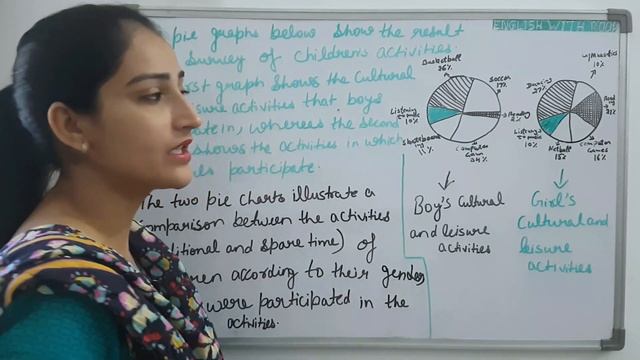 ENGLISH WITH
pie graphs below show the result
Survey of children's activities.
graph shows the Cultural
activities that boys
in, whereas the second
shows the activities in which
participate.
The two pie charts illustrate a
comparison between the activities
and spare time) of
according to their gender
were participated in the
activities.
Basketball
36%
Soccer
17%
Reading
Listening
to music
10%
11%
Computer
Game
24%
Boy's Cultural
and leisure
activities
Gymnastics
10%
Dancing
27%
21%
Listening
to music
10%
Netball
16%
Computer
Games
16%
Girl's
Cultural and
leisure
activities